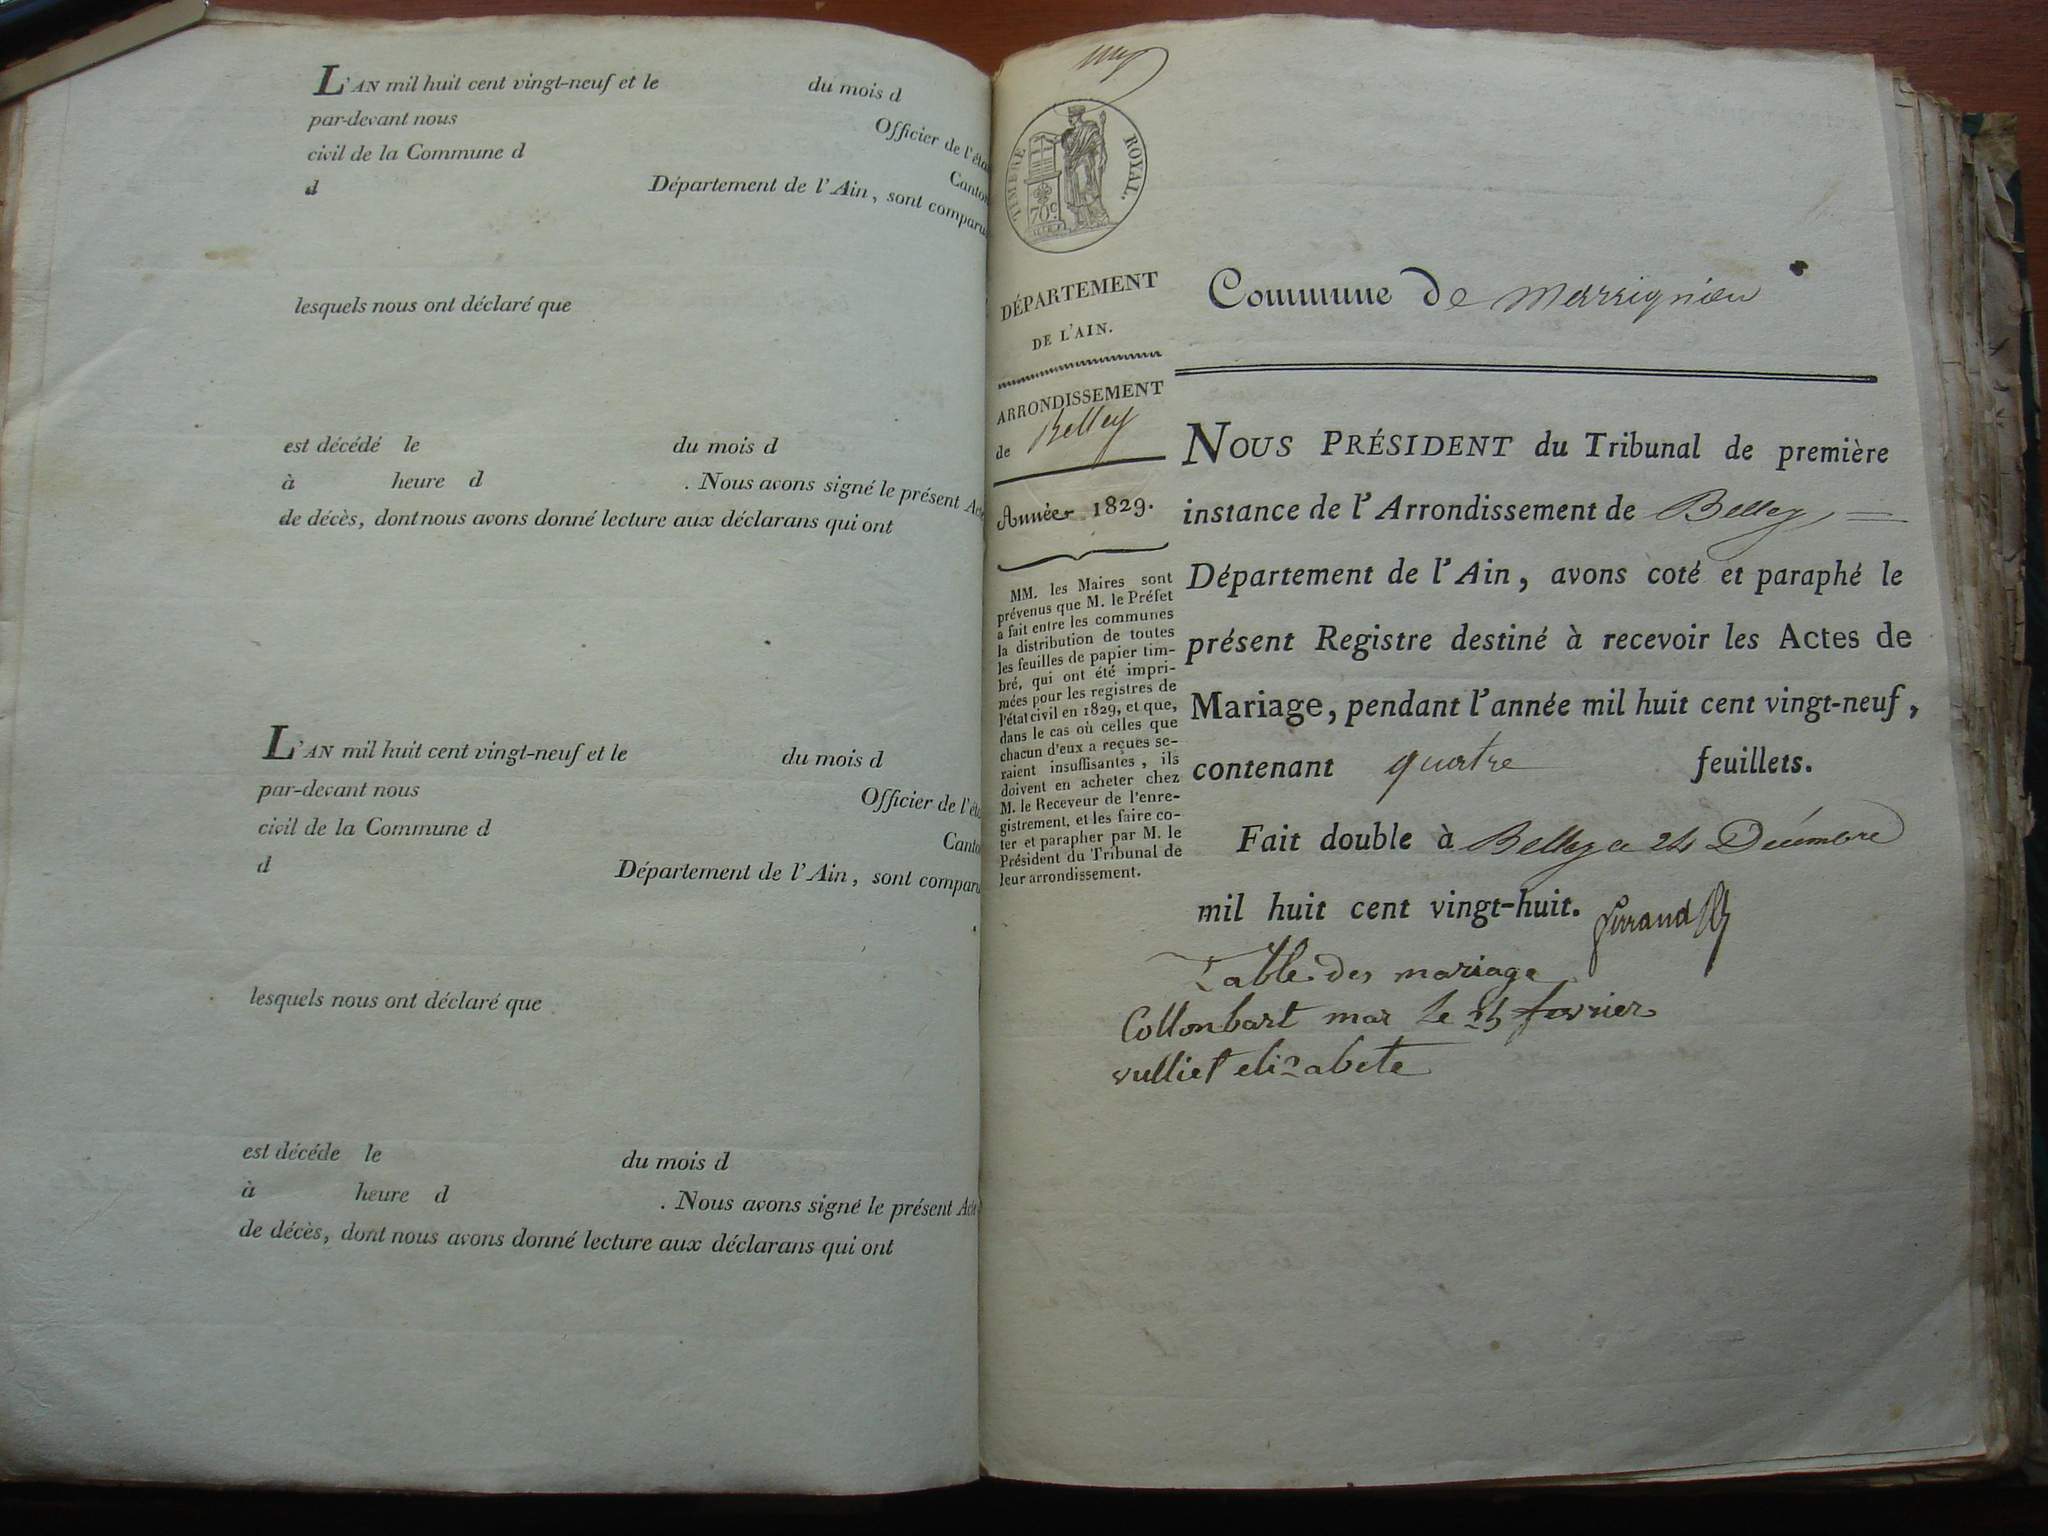 L'AN mil huit cent vingt-neuf et le du mois d
par-devant nous Officier de l'éta
civil de la Commune d Canton
d Département de l'Ain, sont comparu
lesquels nous ont déclaré que
est décédé le du mois d
à heure d . Nous avons signé le présent Acte
de décès, dont nous avons donné lecture aux déclarans qui ont
L'AN mil huit cent vingt-neuf et le du mois d
par-devant nous Officier de l'éta
civil de la Commune d Canto
d Département de l'Ain, sont comparu
lesquels nous ont déclaré que
est décédé le du mois d
à heure d . Nous avons signé le présent Acte
de décès, dont nous avons donné lecture aux déclarans qui ont
TIMBRE ROYAL.
70c
DÉPARTEMENT
DE L'AIN.
ARRONDISSEMENT
de Belley
Année 1829.
MM. les Maires sont
prévenus que M. le Préfet
a fait entre les communes
la distribution de toutes
les feuilles de papier tim-
bré, qui ont été impri-
mées pour les registres de
l'état civil en 1829, et que,
dans le cas où celles que
chacun d'eux a reçues se-
raient insuffisantes, ils
doivent en acheter chez
M. le Receveur de l'enre-
gistrement, et les faire co-
ter et parapher par M. le
Président du Tribunal de
leur arrondissement.
Commune de Marrignieu
NOUS PRÉSIDENT du Tribunal de première
instance de l'Arrondissement de Belley
Département de l'Ain, avons coté et paraphé le
présent Registre destiné à recevoir les Actes de
Mariage, pendant l'année mil huit cent vingt-neuf,
contenant quatre feuillets.
Fait double à Belley ce 24 Décembre
mil huit cent vingt-huit. Ferrand
Table des mariage
Collonbart mar le 25 fevrier
vulliet elizabete